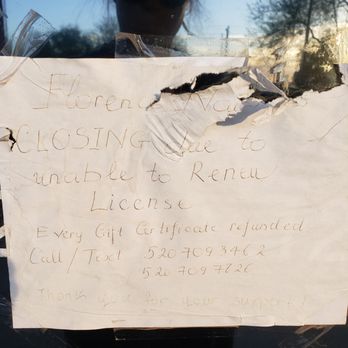 CLOSING due to
unable to Renew
License
Every Gift Certificate refunded
Call/Text 520 709 3462
520 709 7626
Thank you for your support!